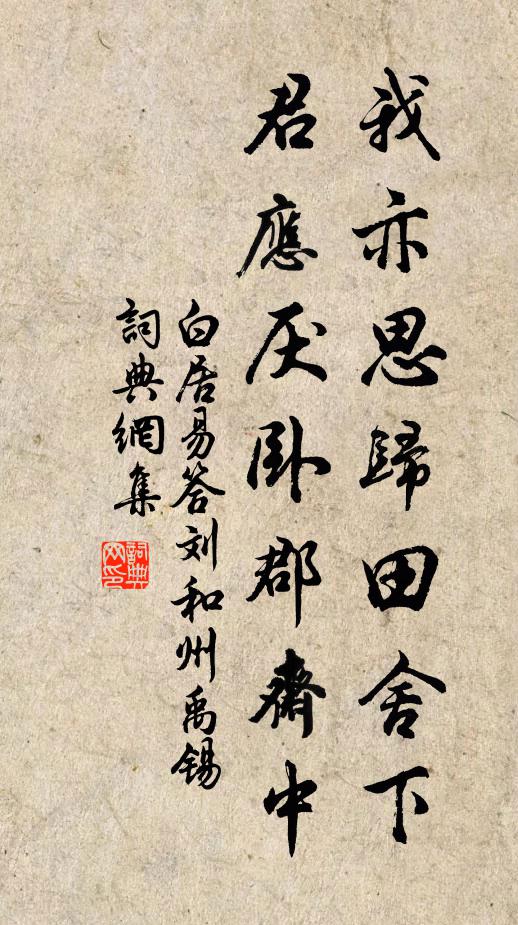 我亦思歸田舍下
君應厌卧郡齋中
白居易答刘和州禹锡
詞典網集
詞典网印